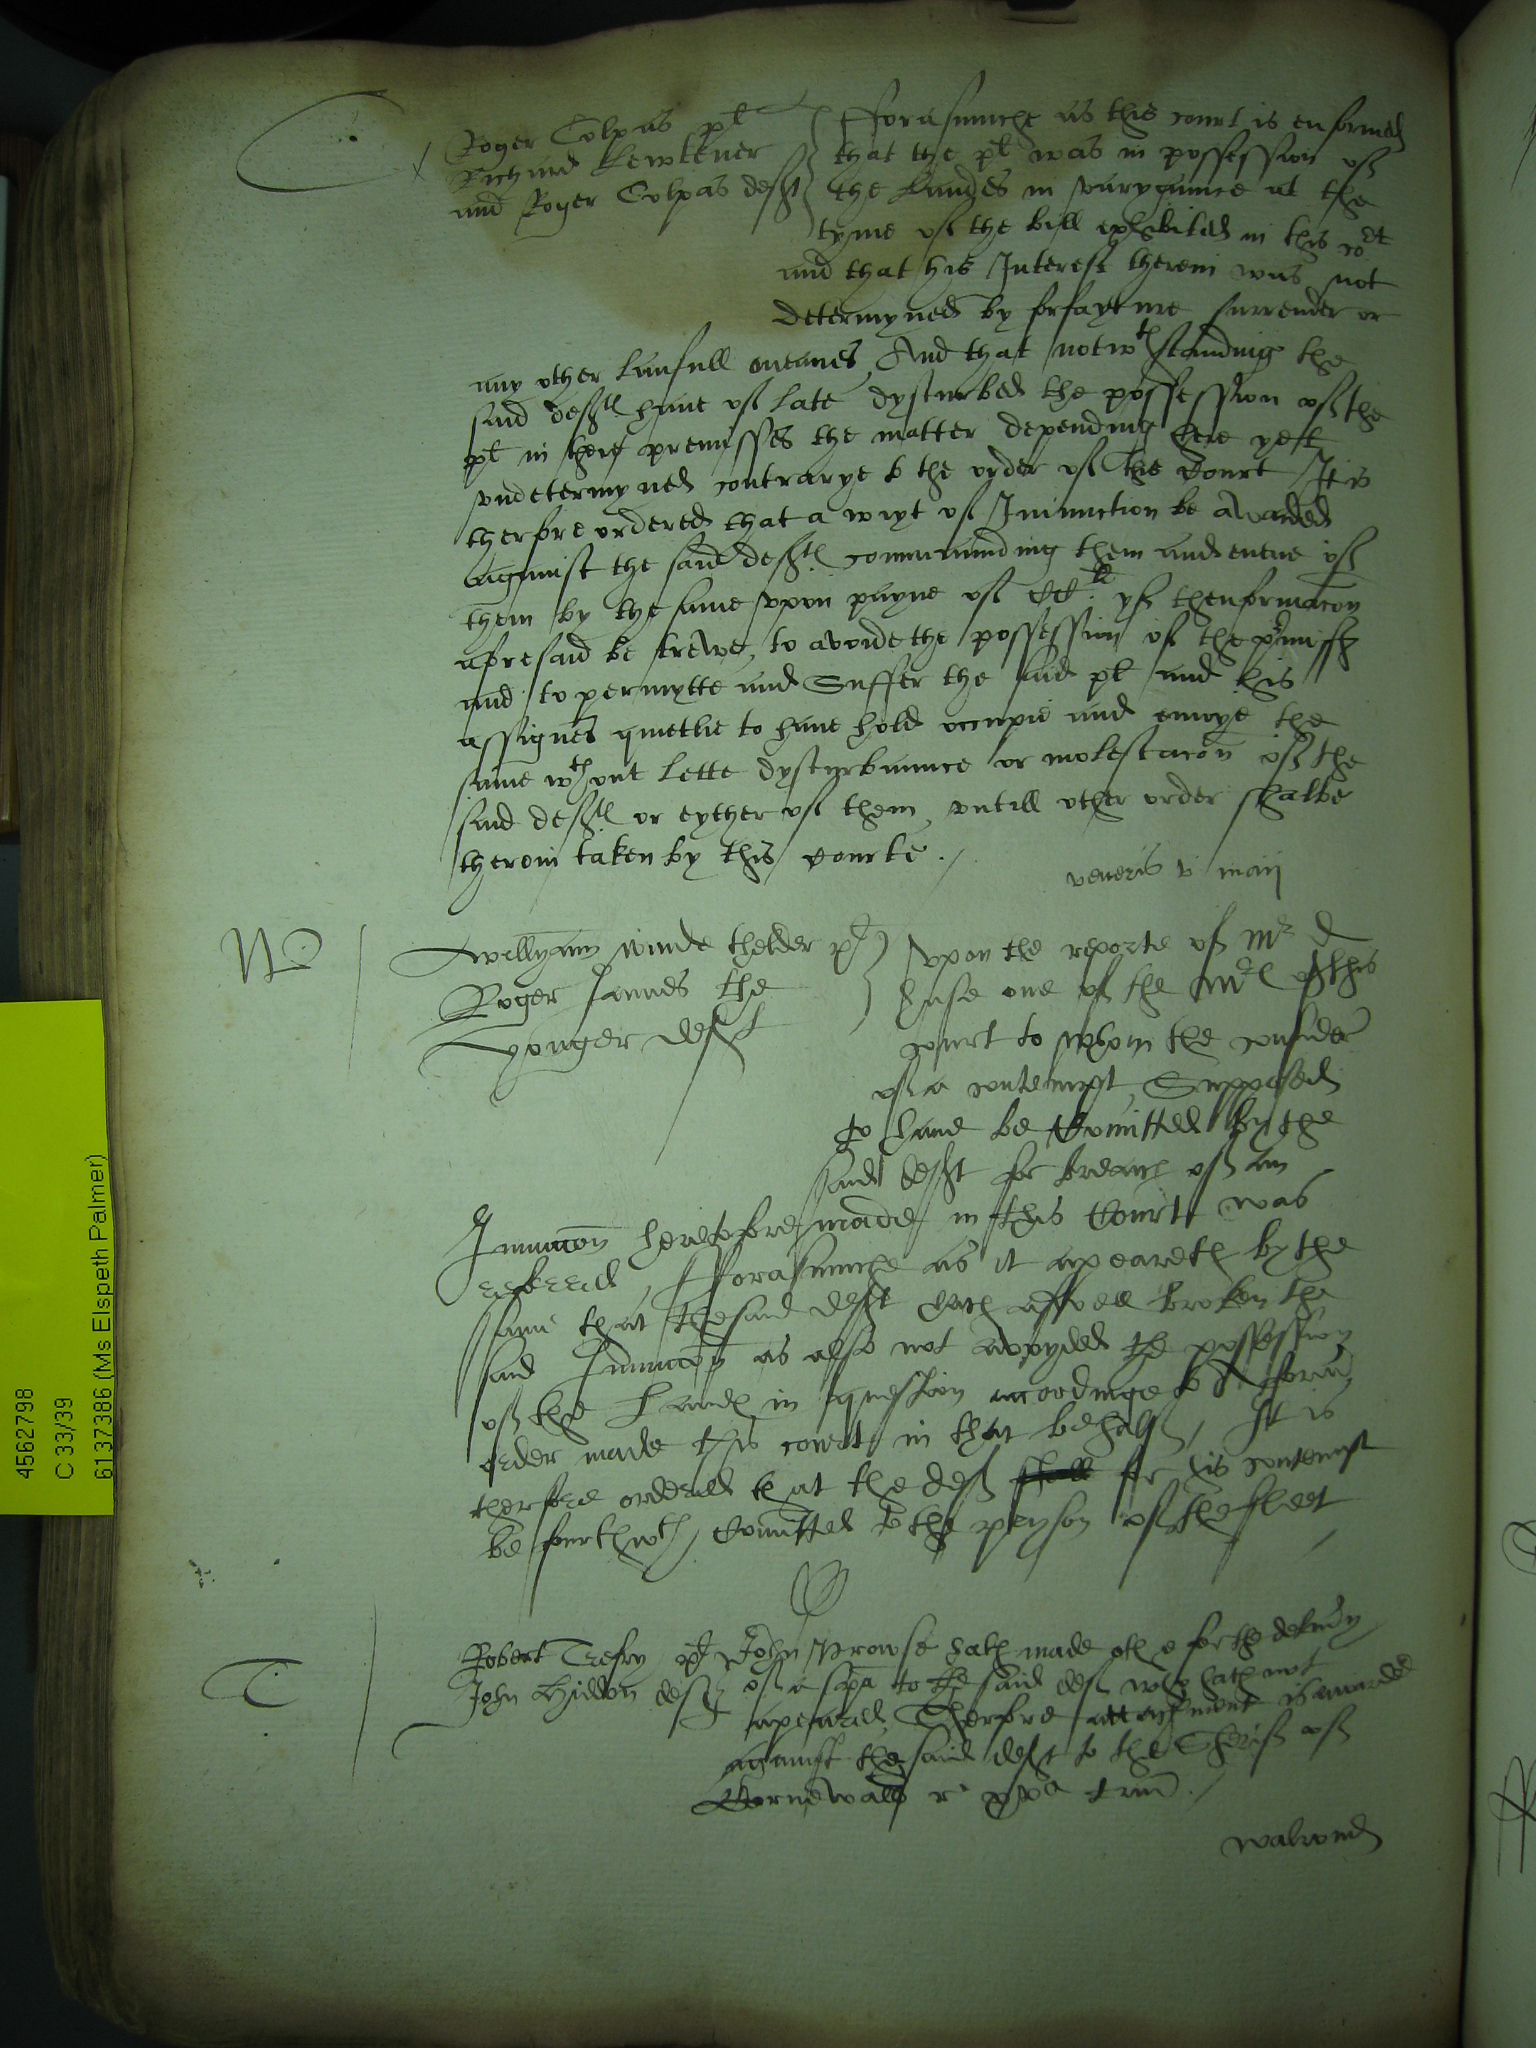 C
Roger Colpas plt
Richard Lewkener
and Roger Colpas deftes
fforasmuche as this court is enformed
that the plt was in possession of
the Landes in varyaunce at the
tyme of the bill exhibited in this cort
and that his Interest therein was not
determyned by forfayture surrender or
any other laufull meanes, And that notwthstanding the
said deftes haue of late dysturbed the possession of the
plt in the premisses the matter depending here yest
vndetermyned contrarye to the order of this Court It is
therfore ordered that a wryt of Iniunction be awarded
against the said deftes commaunding them and euerie of
them by the same vpon payne of yf thenformacon
aforesaid be trewe, to avoide the possession of the premisses
and to permytte and Suffer the said plt and his
assignes quietlie to haue hold occupie and enioye the
same wthout lette dysturbaunce or molestacon of the
said deftes or eyther of them, vntill other order shalbe
therein taken by this Courte ./
veneris v maij
W
Willyam thelder plt
Roger the
yonger deft
Vpon the reporte of Mr D
one of the Mres of this
court to whom the
of a contempt Supposed
to haue be Comitted by the
said deft for breach of an
Iniunccon heretofore made in this Court was
referred, fforasmuche as it apeareth by the
same that the said deft hath aswell broken the
said Iniunccon as also not avoyded the possession
of the Landes in question accordinge to A former
order made this court in that behalf, It is
therfore ordered that the def for his contempt
be fourthwth Comitted to the pryson of the fleet
T
Robert Trefry plt
John deft
John Prowse hath made othe for the delivery
of a spa to the said def who hath not
apeared, Therfore attachment is awarded
against the said deft to the Sherif of
Cornewall r
walrond
4562798
C 33/39
6137386 (Ms Elspeth Palmer)